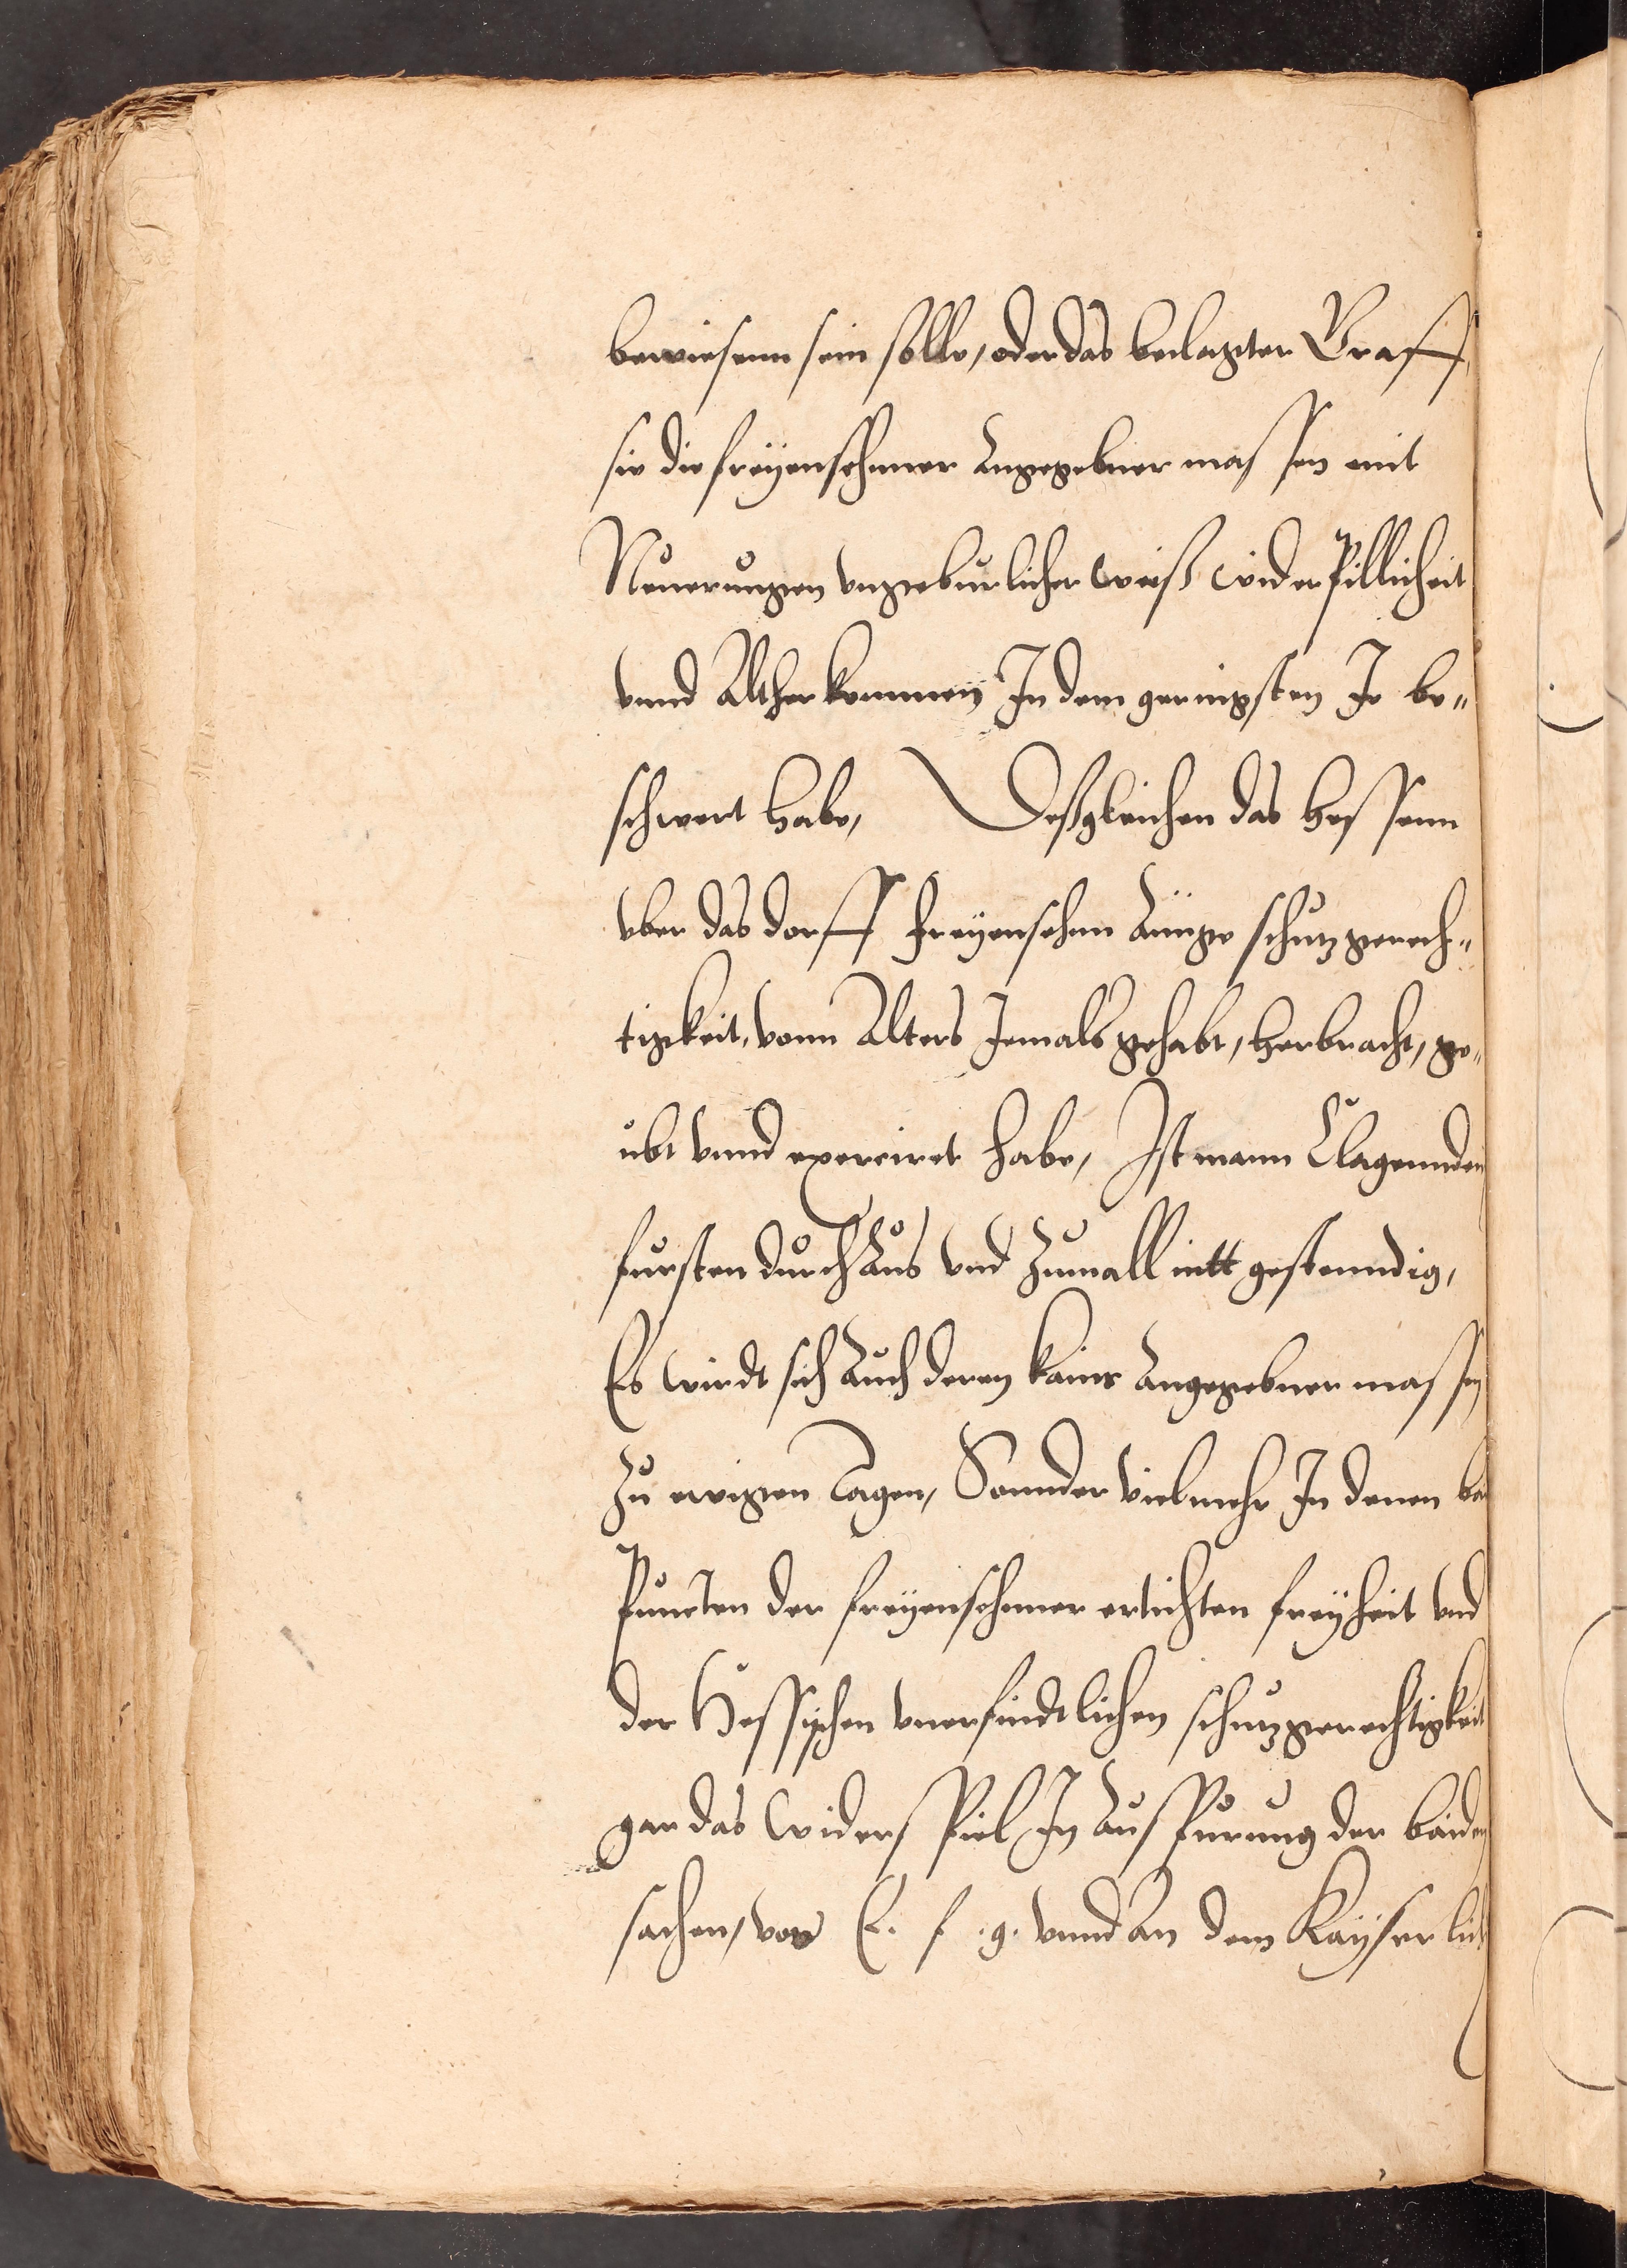 bewiesenn sein solle, oder das beclagter Graff,
sie die freyensehner angegebner massen mit
Neuerungen ungeburlicher weiß wider Pillicheit
unnd Altherkommen In dem geringsten Je be-
schwert habe, Deßgleichen das Hessenn
uber das dorff freyensehn Ainige schutzgerech-
tigkeit, vonn Alters Jemals gehabt, herbracht, ge-
übt unnd exerciret habe, Ist mann Clagennden
fursten durchaus und zumall nitt gestenndig,
Es wirdt sich auch deren kains angegebner massen
zu ewigen Tagen, Sonnder vielmehr In denen
Puncten der freyensehner ertichten freyheit und
der Hessischen unerfindtlichen schutzgerechtigkeit
gar das widerspiel In ausfurung der baiden
sachen, vor E. f. g. unnd an dem Kayserlich